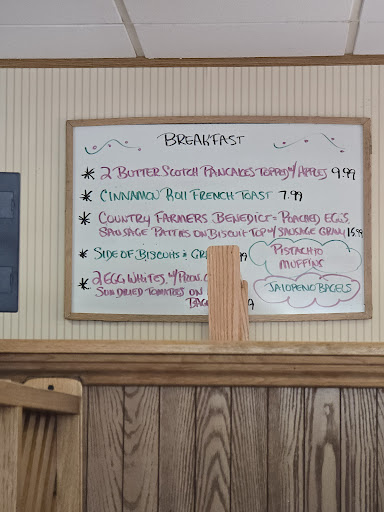 BREAKFAST
* 2 BUTTERSCOTCH PANCAKES TOPPED W/ APPLES 9.99
* CINNAMON ROLL FRENCH TOAST 7.99
* COUNTRY FARMERS BENEDICT = POACHED EGGS,
SAUSAGE PATTIES ON BISCUIT TOP W/ SAUSAGE GRAVY
* SIDE OF BISCUITS &
PISTACHIO
MUFFINS
* 2 EGG WHITES, W/
SUN DRIED TOMATOES ON
JALAPENO BAGELS